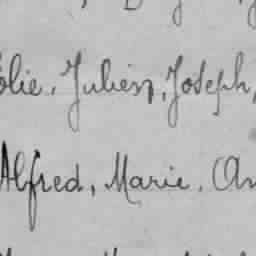 olie, Julien, Joseph,
Alfred, Marie, An